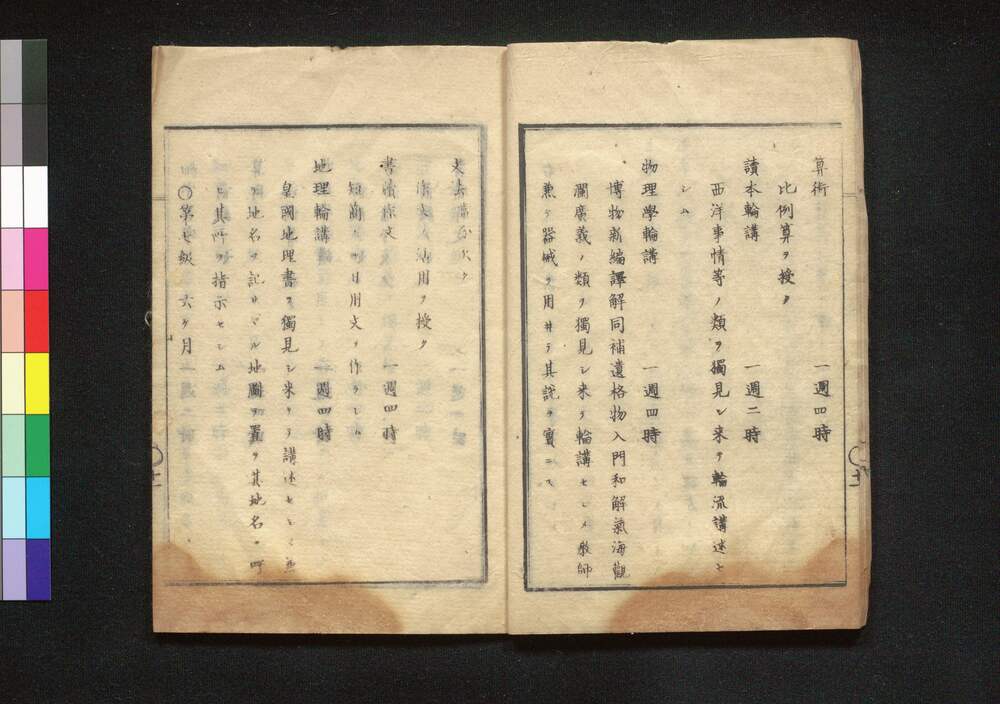 算術 一週四時
比例算ヲ授ク
讀本輪講 一週二時
西洋事情等ノ類ヲ獨見シ来テ輪流講述セ
シム
物理學輪講 一週四時
博物新編譯解同補遺格物入門和解氣海觀
瀾廣義ノ類ヲ獨見シ来テ輪講セシメ教師
兼テ器械ヲ用井テ其説ヲ實ニス
ヲ授ク
書牘作文 一週四時
日用文ヲ作ラシム
地理輪講 一週四時
皇國地理書ヲ獨見シ来リテ講述セシメ
地名ヲ記サヾル地圖ヲ置テ其地名ヲ呼
ヒ其所ヲ指示セシム
○第七級 六ケ月